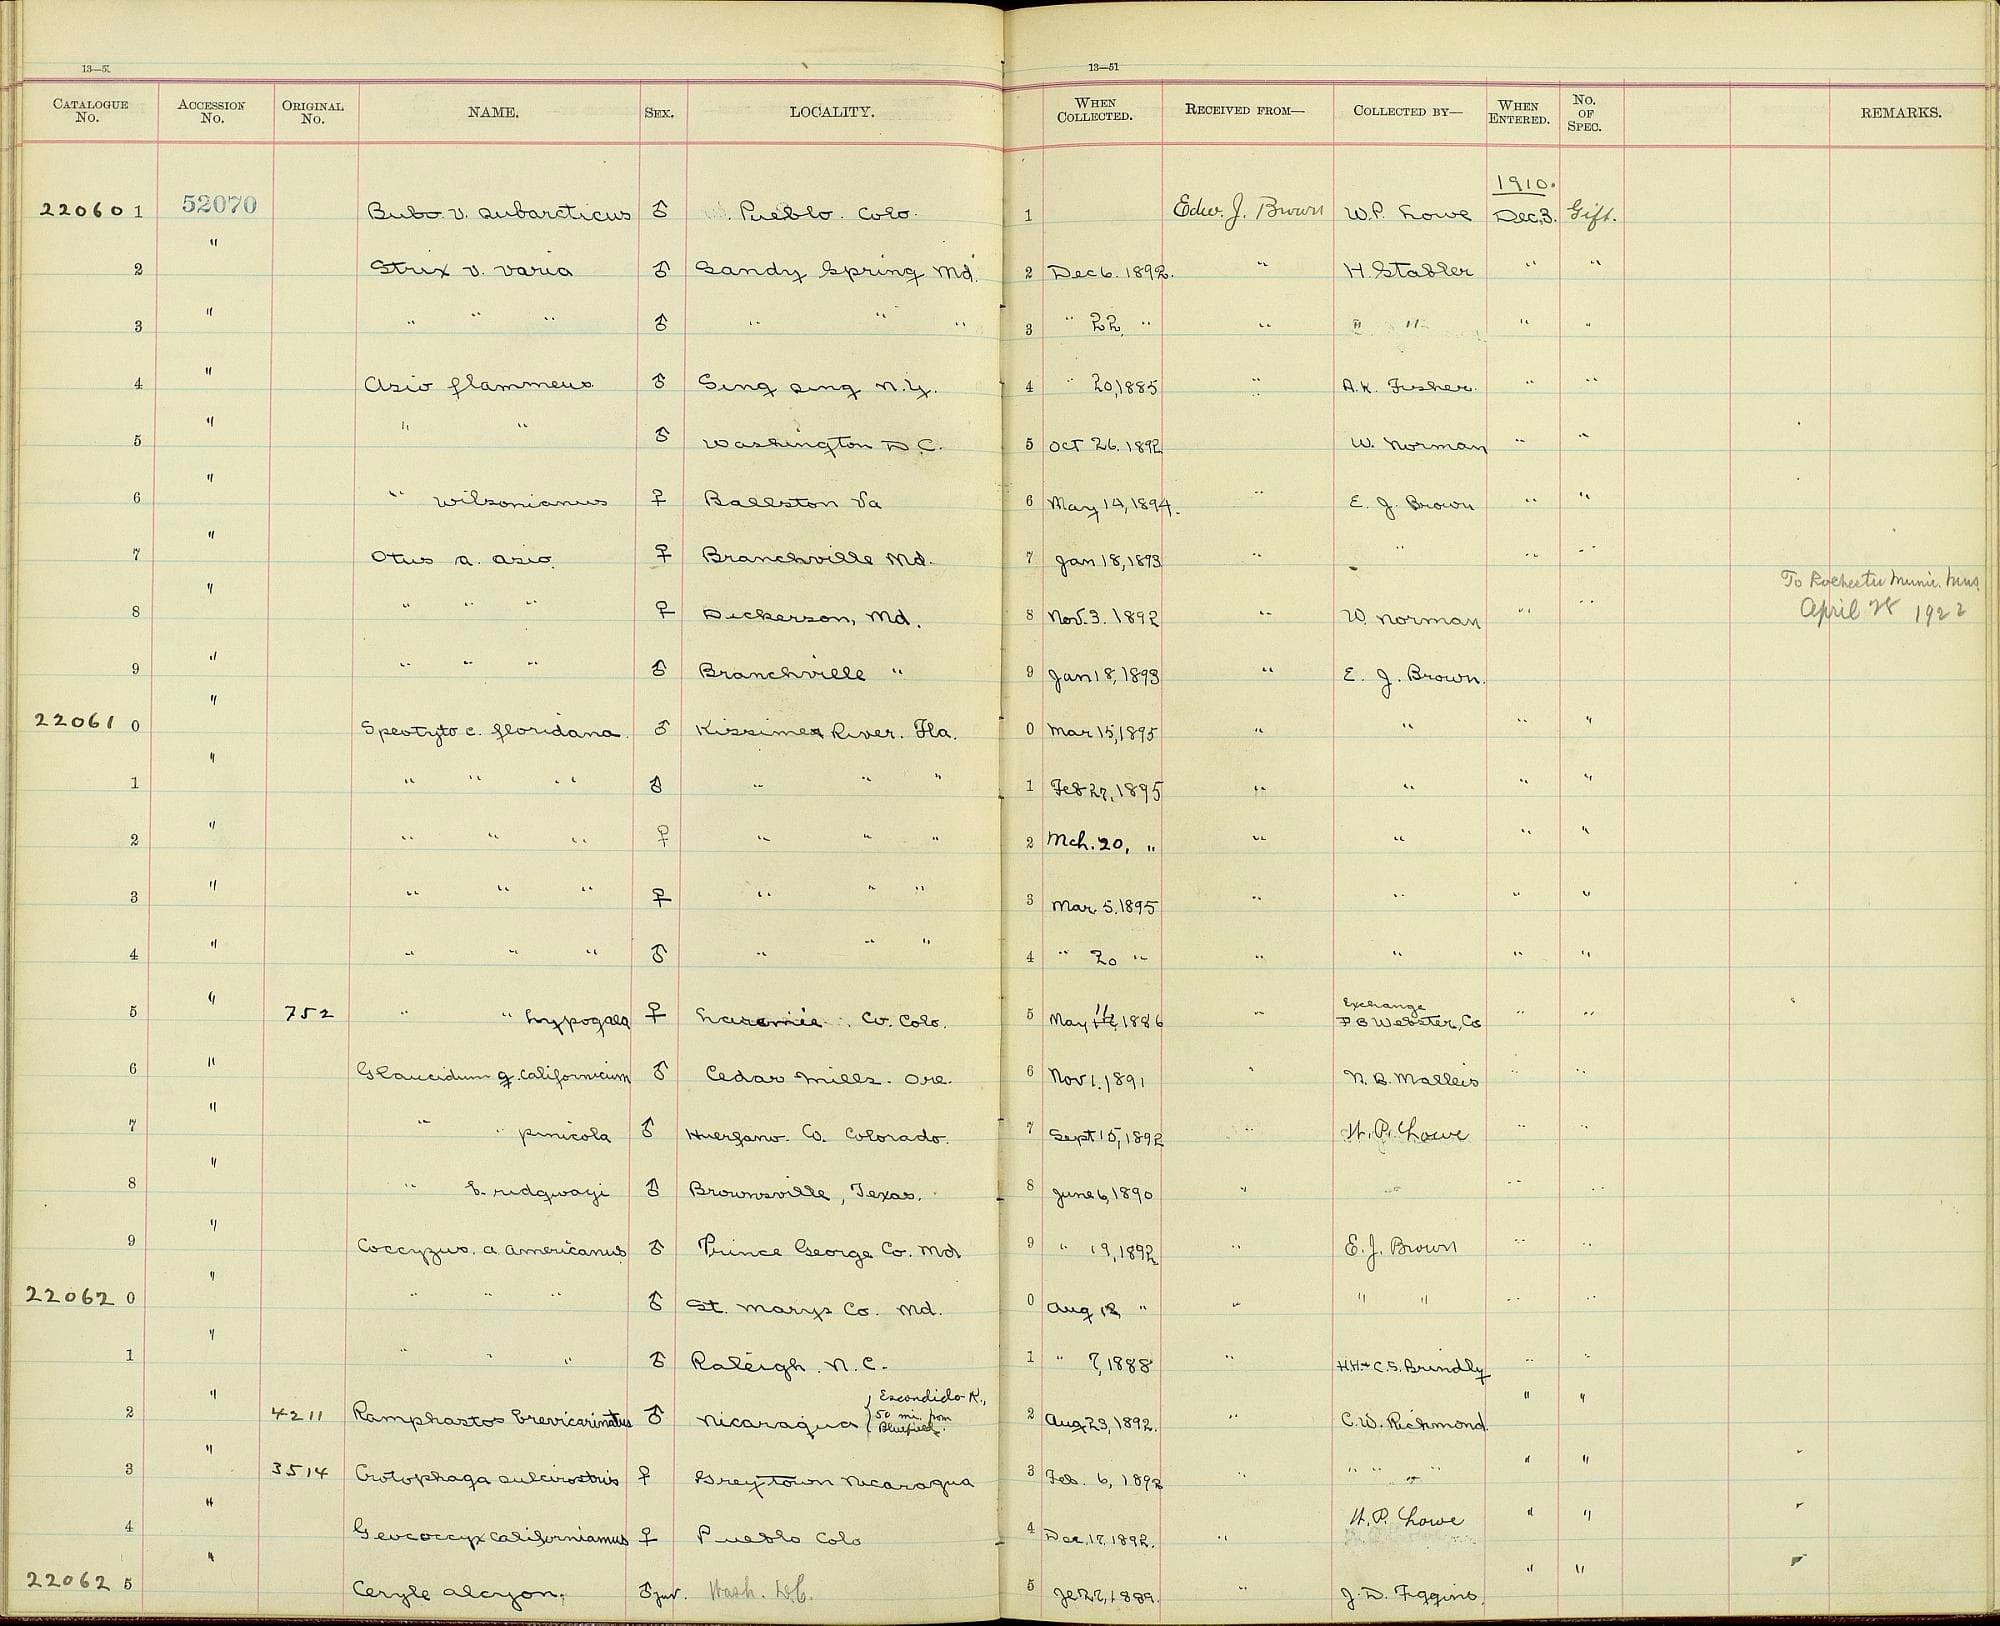 13—51
CATALOGUE No. ACCESSION No. ORIGINAL No. NAME. SEX. LOCALITY. WHEN COLLECTED. RECEIVED FROM— COLLECTED BY— WHEN ENTERED. NO. OF SPEC. REMARKS.
1910.
220601 52070 Bubo v. subarcticus ♂ Pueblo. Colo. 1 Edw. J. Brown W.P. Lowe Dec,3. Gift.
2 " Strix v. varia ♂ Sandy Spring Md. 2 Dec 6. 1892. " H. Stabler " "
3 " " " " ♂ " " " 3 " 22, " " " " " "
4 " Asio flammeus ♂ Sing Sing N.Y. 4 " 20, 1885 " A.K. Fisher. " "
5 " " " ♂ Washington D.C. 5 Oct 26. 1892 W. Norman " "
6 " " wilsonianus ♀ Ballston Va 6 May 14, 1894. " E. J. Brown " "
7 " Otus a. asio. ♀ Branchville Md. 7 Jan 18, 1893 " " " "
8 " " " " ♀ Dickerson, Md. 8 Nov. 3. 1892 " W. Norman " " To Rochester Munic. Mus. April 28 1922
9 " " " " ♂ Branchville " 9 Jan 18, 1893 " E. J. Brown.
220610 " Speotyto c. floridana. ♂ Kissimee River. Fla. 0 Mar 15, 1895 " " " "
1 " " " " ♂ " " " 1 Feb 27, 1895 " " " "
2 " " " " ♀ " " " 2 Mch. 20, " " " " "
3 " " " " ♀ " " " 3 Mar 5, 1895 " " " "
4 " " " " ♂ " " " 4 " 20 " " " " "
5 " 752 " " hypogaea ♀ Laramie Co. Colo. 5 May 11, 1886 " Exchange F B Webster, Co " "
6 " Glaucidum g. californicum ♂ Cedar Mills. Ore. 6 Nov 1. 1891 " N. B. Malleis " "
7 " " " pinicola ♂ Huerfano. Co. Colorado. 7 Sept 15, 1892 " W. P. Lowe " "
8 " " b. ridgwayi ♂ Brownsville, Texas. 8 June 6, 1890 " " " "
9 " Coccyzus. a. americanus ♂ Prince George Co. Md 9 " 19, 1892 " E. J. Brown " "
220620 " " " " ♂ St. Marys Co. Md. 0 Aug 12, " " " " " "
1 " " " " ♂ Raleigh. N.C. 1 " 7, 1888 " H.H. + C.S. Brindly " "
2 " 4211 Ramphastos brevicarinatus ♂ Nicaragua { Escondido R., 50 mi. from Bluefields. 2 Aug 23, 1892. " C.W. Richmond. " "
3 " 3514 Crotophaga sulcirostris ♀ Greytown Nicaragua 3 Feb. 6, 1892 " " " " " "
4 " Geococcyx californianus ♀ Pueblo Colo 4 Dec. 17, 1892. " W. P. Lowe " "
220625 " Ceryle alcyon, ♂ juv. Wash. D.C. 5 Je 27, 1889. " J. D. Figgins. " "